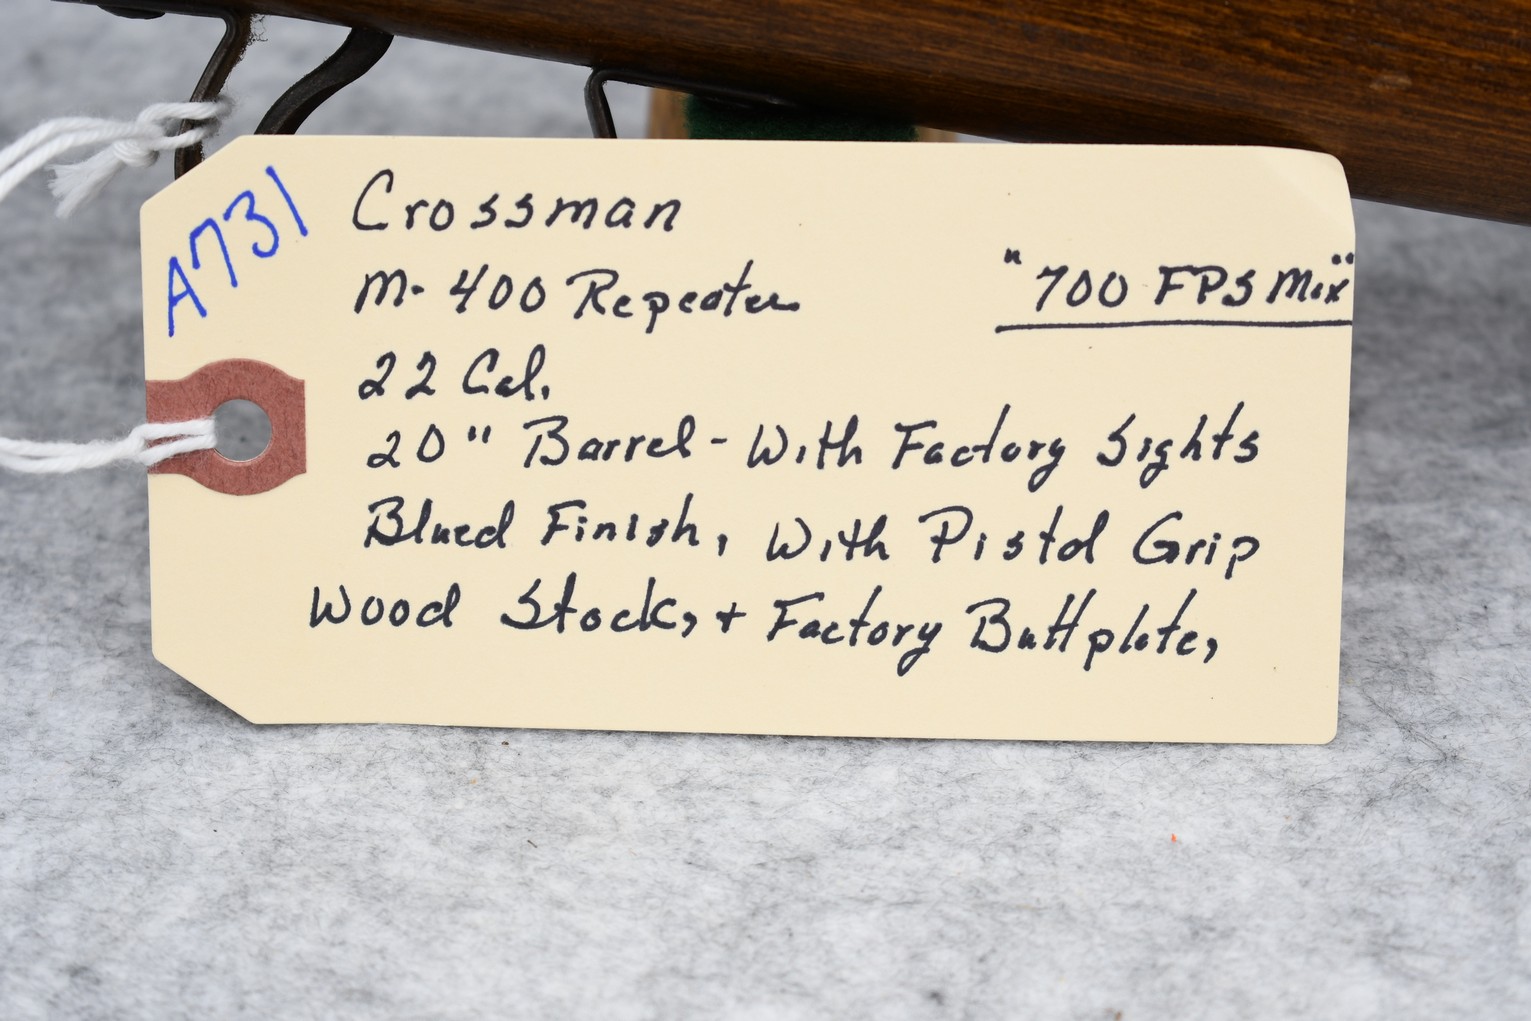 A731
Crossman
M-400 Repeater
"700 FPS Mix"
22 Cal.
20" Barrel - With Factory Sights
Blued Finish, With Pistol Grip
Wood Stock, + Factory Buttplate,